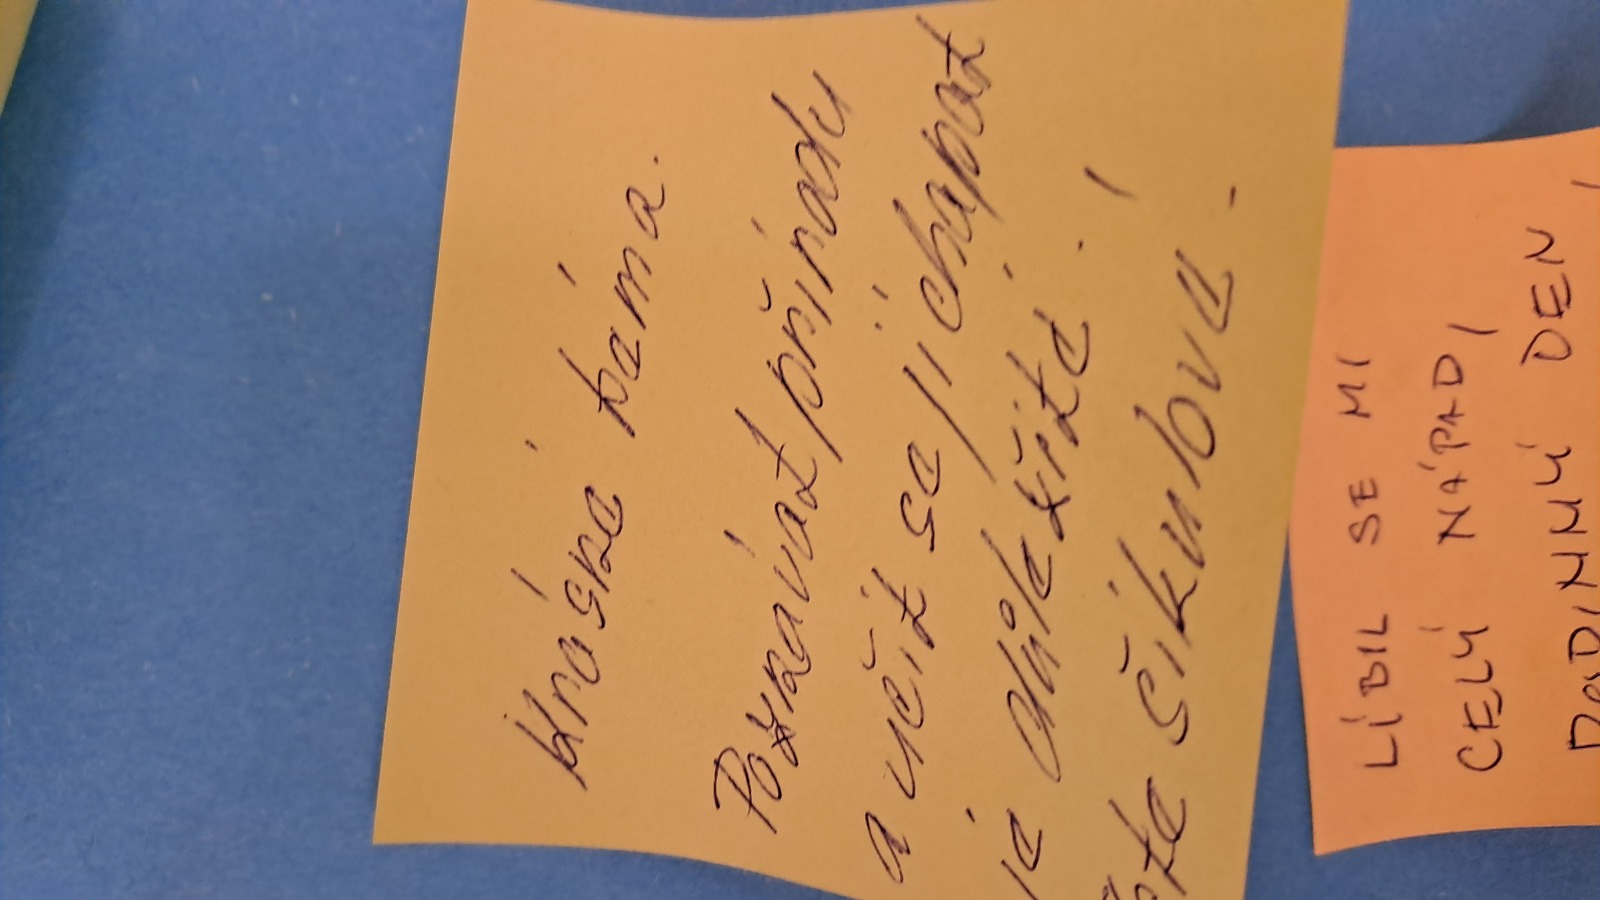 Krásné téma.
Poznávat přírodu
a učit se ji chápat
je důležité!
Jste šikulové.
LÍBIL SE MI
CELÝ NÁPAD,
RODINNÝ DEN,